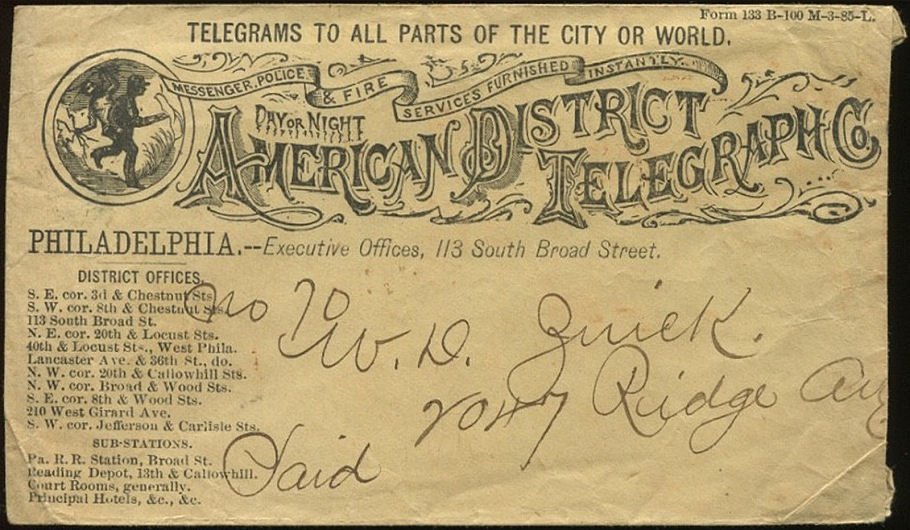 Form 133 B-100 M-3-85-L.
TELEGRAMS TO ALL PARTS OF THE CITY OR WORLD.
MESSENGER, POLICE & FIRE SERVICES FURNISHED INSTANTLY.
DAY OR NIGHT
AMERICAN DISTRICT
TELEGRAPH CO.
PHILADELPHIA.--Executive Offices, 113 South Broad Street.
DISTRICT OFFICES.
S. E. cor. 3d & Chestnut Sts.
S. W. cor. 8th & Chestnut Sts.
113 South Broad St.
N. E. cor. 20th & Locust Sts.
40th & Locust Sts., West Phila.
Lancaster Ave. & 36th St., do.
N. W. cor. 20th & Callowhill Sts.
N. W. cor. Broad & Wood Sts.
S. E. cor. 8th & Wood Sts.
210 West Girard Ave.
S. W. cor. Jefferson & Carlisle Sts.
SUB-STATIONS.
Pa. R. R. Station, Broad St.
Reading Depot, 13th & Callowhill.
Court Rooms, generally.
Principal Hotels, &c., &c.
No 70
W. D. Zuick.
2047 Ridge Av
Paid